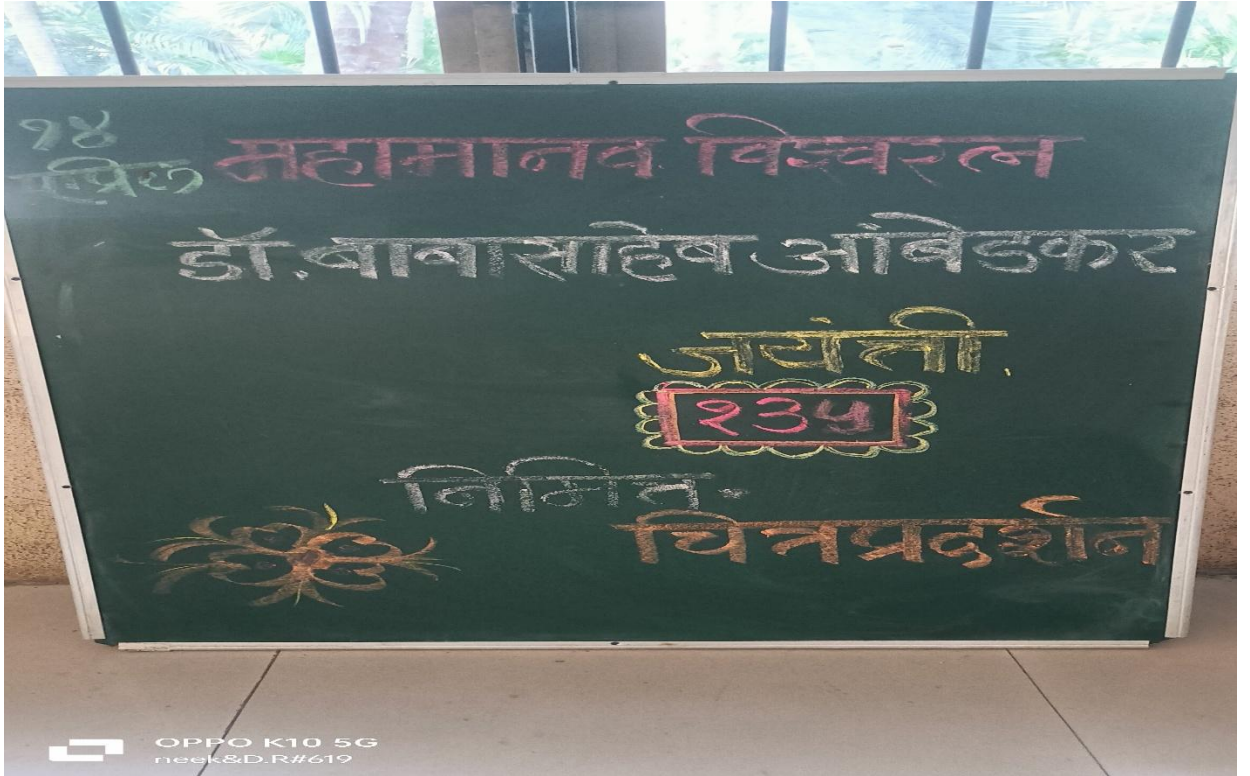 १४
एप्रिल
महामानव विश्वरत्न
डॉ. बाबासाहेब आंबेडकर
जयंती.
१३५
निमित.
चित्रप्रदर्शन
OPPO K10 5G
neek&D.R#619